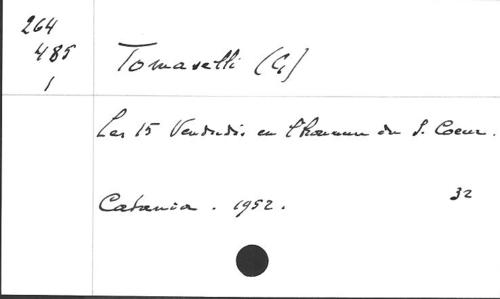 264
485
1
Tomaselli (G)
Les 15 Vendredis en l'honneur du S. Coeur.
Catania. 1952.
32